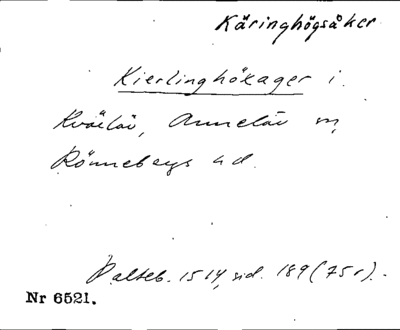 Käringhögsåker
Kierlinghökager i.
Kväilöv, Annelöv sn,
Rönnebergs hd.
Palteb. 1514, sid. 189 (75 r).
Nr 6521.